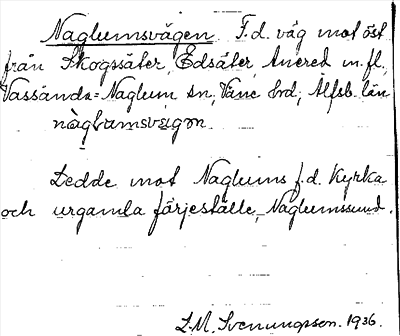 Naglumsvägen. F.d. väg mot öst
från Skogssäter, Edsäter, Anered m.fl,
Vassända=Naglum sn, Väne hrd, Älfsb. län
nàglωmsvægən

Ledde mot Naglums f.d. kyrka
och urgamla färjeställe, Naglumssund.

L.M. Svenungsson. 1936.